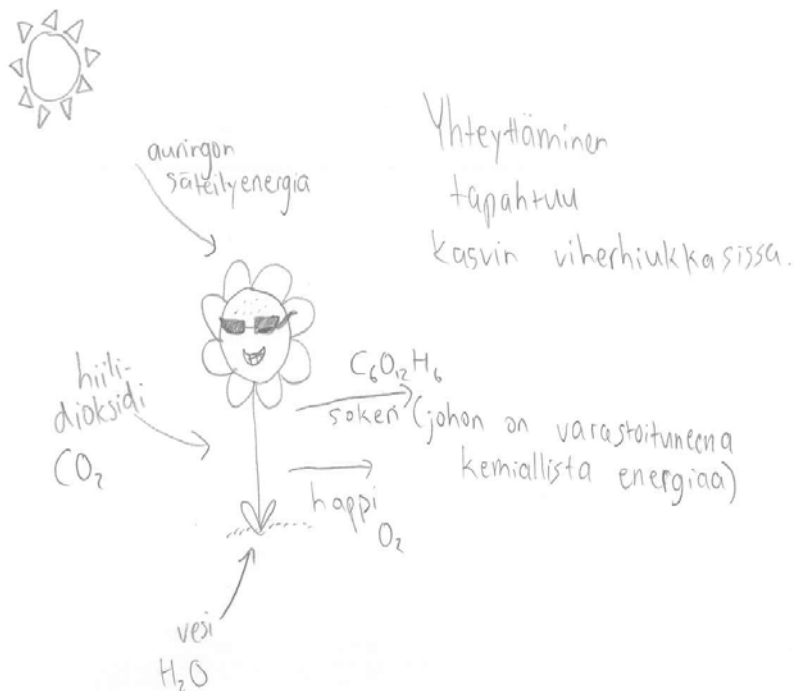 auringon
säteilyenergia
Yhteyttäminen
tapahtuu
kasvin viherhiukkasissa.
hiili-
dioksidi
CO₂
C₆O₁₂H₆
sokeri (johon on varastoituneena
kemiallista energiaa)
happi
O₂
vesi
H₂O